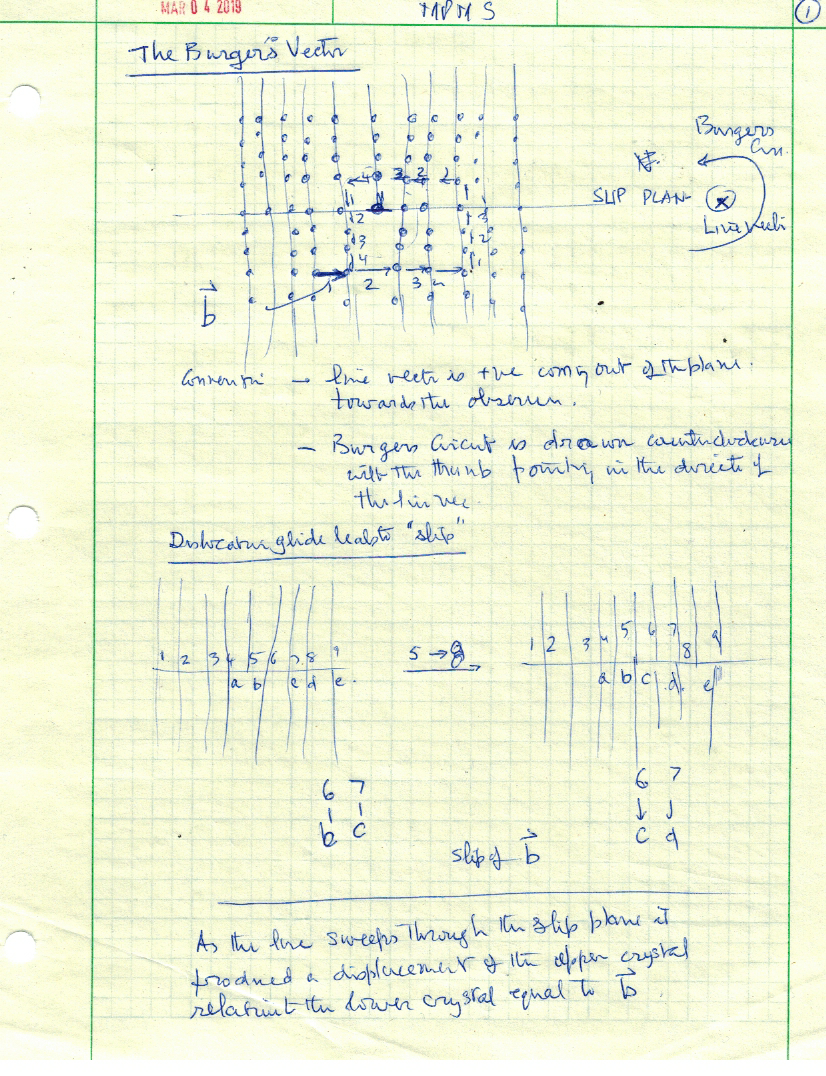 MAR 04 2019
MPMS
1
The Burger's Vector
Burgers
Cir.
SLIP PLAN-
Line vecti
4 3 2 1
1 2 3 4
1 2 3 4
1 2 3
b
Convention → line vectr is +ve coming out of the plane.
towards the observer.
— Burgers Circuit is drawn counterclockwise
with the thumb pointing in the directi of
the lin vec.
Dislocation glide leads to "slip"
1 2 3 4 5 6 7 8 9
a b c d e.
5 → 8
1 2 3 4 5 6 7 8 9
a b c d. e
6 7
b c
6 7
c d
slip of b
As the line sweeps through the slip plane it
produced a displacement of the upper crystal
relativt the lower crystal equal to b.